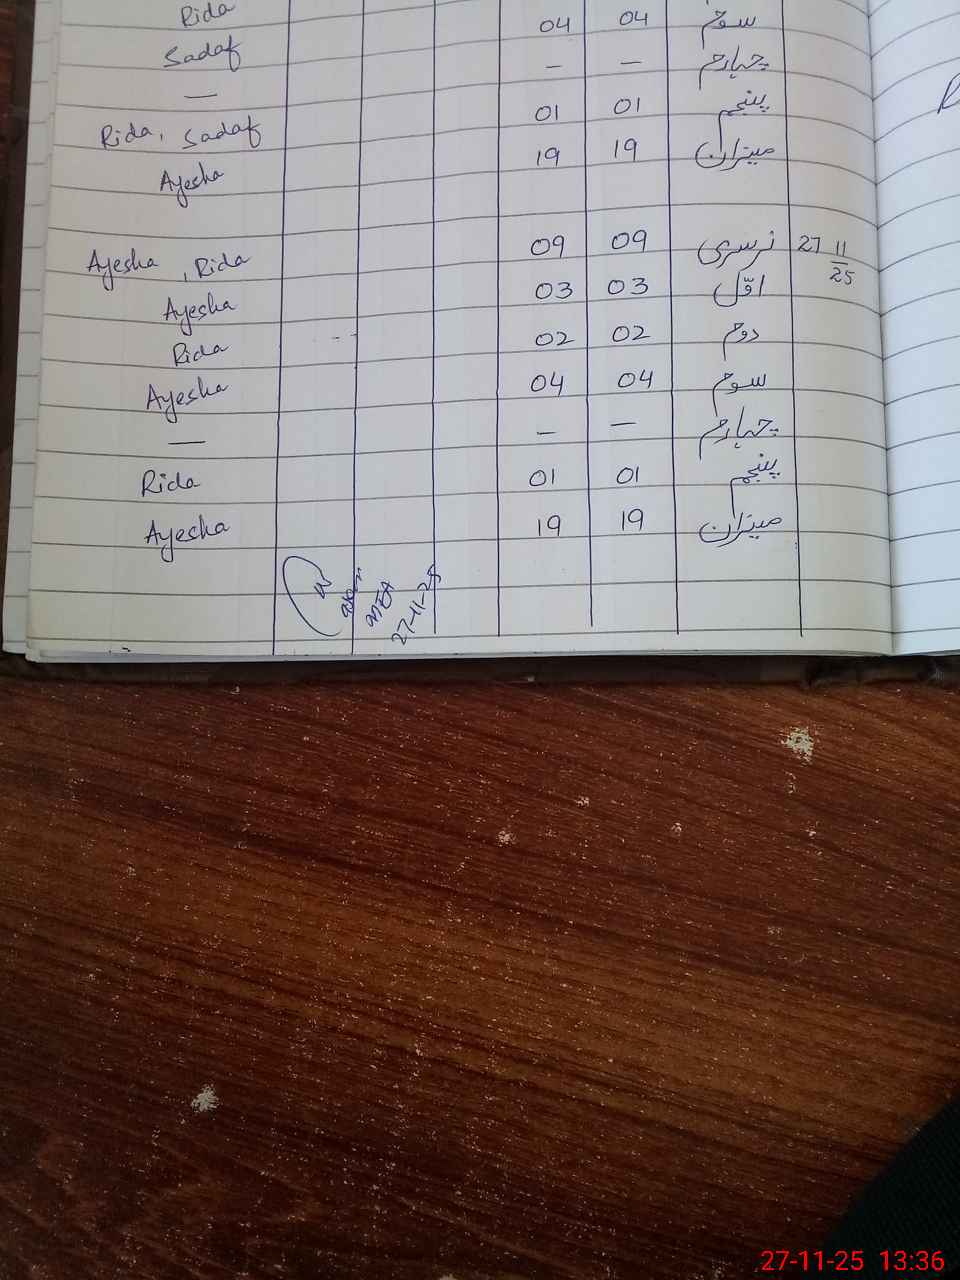 Rida 04 04 سوم
Sadaf – – چہارم
— 01 01 پنجم
Rida, Sadaf 19 19 میزان
Ayesha
Ayesha, Rida 09 09 نرسری 27 11/25
Ayesha 03 03 اوّل
Rida 02 02 دوم
Ayesha 04 04 سوم
— – – چہارم
Rida 01 01 پنجم
Ayesha 19 19 میزان
MEA
27-11-25
27-11-25 13:36